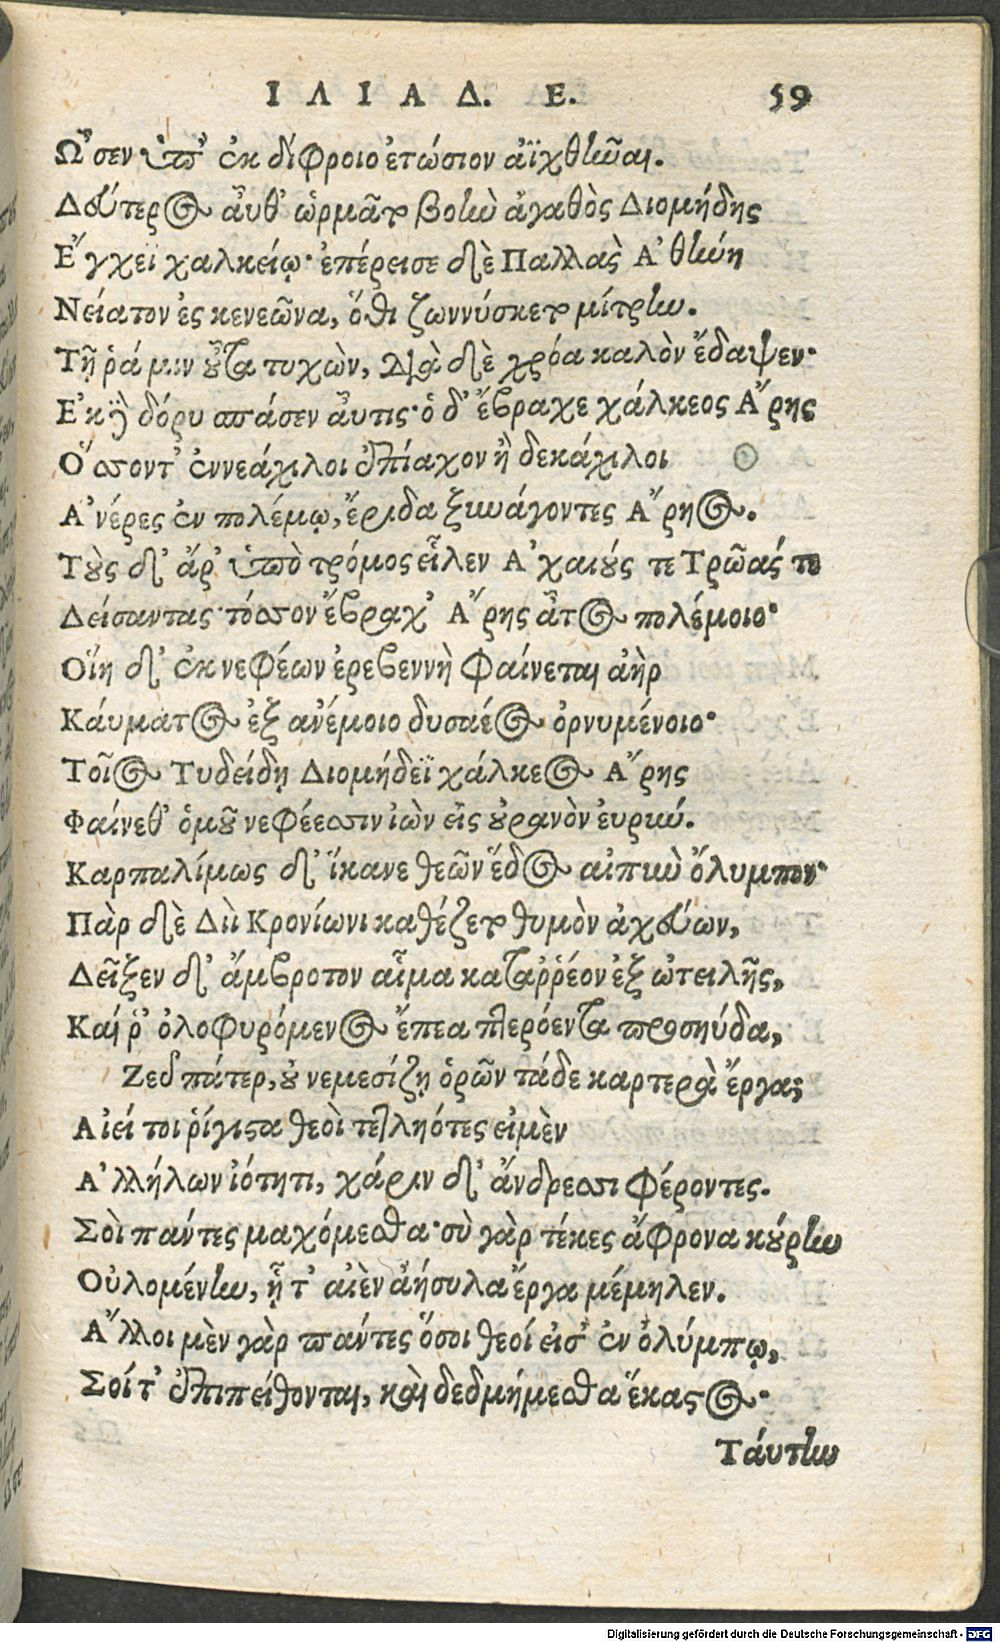 ΙΛΙΑΔ. Ε. 59
Ὦσεν ὑπ' ἐκ δίφροιο ἐτώσιον ἀϊχθῆναι.
Δεύτερος αὖθ' ὡρμᾶτο βοὴν ἀγαθὸς Διομήδης
Ἔγχεϊ χαλκείῳ· ἐπέρεισε δὲ Παλλὰς Ἀθήνη
Νείατον ἐς κενεῶνα, ὅθι ζωννύσκετο μίτρην.
Τῇ ῥά μιν οὖτα τυχὼν, διὰ δὲ χρόα καλὸν ἔδαψεν·
Ἐκ δὲ δόρυ σπάσεν αὖτις· ὁ δ' ἔβραχε χάλκεος Ἄρης
Ὅσσοντ' ἐννεάχιλοι ἐπίαχον ἢ δεκάχιλοι
Ἀνέρες ἐν πολέμῳ, ἔριδα ξυνάγοντες Ἄρηος.
Τοὺς δ' ἄρ' ὑπὸ τρόμος εἷλεν Ἀχαιούς τε Τρῶάς τε
Δείσαντας· τόσσον ἔβραχ' Ἄρης ἆτος πολέμοιο·
Οἵη δ' ἐκ νεφέων ἐρεβεννὴ φαίνεται ἀὴρ
Καύματος ἐξ ἀνέμοιο δυσαέος ὀρνυμένοιο·
Τοῖος Τυδείδῃ Διομήδεϊ χάλκεος Ἄρης
Φαίνεθ' ὁμοῦ νεφέεσσιν ἰὼν εἰς οὐρανὸν ἐυρύν.
Καρπαλίμως δ' ἵκανε θεῶν ἕδος αἰπὺν ὄλυμπον·
Πὰρ δὲ Διὶ Κρονίωνι καθέζετο θυμὸν ἀχεύων,
Δεῖξεν δ' ἄμβροτον αἷμα καταῤῥέον ἐξ ὠτειλῆς,
Καί ῥ' ὀλοφυρόμενος ἔπεα πτερόεντα προσηύδα,
Ζεῦ πάτερ, οὐ νεμεσίζῃ ὁρῶν τάδε καρτερὰ ἔργα;
Αἰεί τοι ῥίγιστα θεοὶ τετληότες εἰμὲν
Ἀλλήλων ἰότητι, χάριν δ' ἄνδρεσσι φέροντες.
Σοὶ πάντες μαχόμεσθα· σὺ γὰρ τέκες ἄφρονα κούρην
Οὐλομένην, ᾗ τ' αἰὲν ἀήσυλα ἔργα μέμηλεν.
Ἄλλοι μὲν γὰρ πάντες ὅσοι θεοί εἰσ' ἐν ὀλύμπῳ,
Σοί τ' ἐπιπείθονται, καὶ δεδμήμεσθα ἕκαστος·
Τάυτην
Digitalisierung gefördert durch die Deutsche Forschungsgemeinschaft - DFG